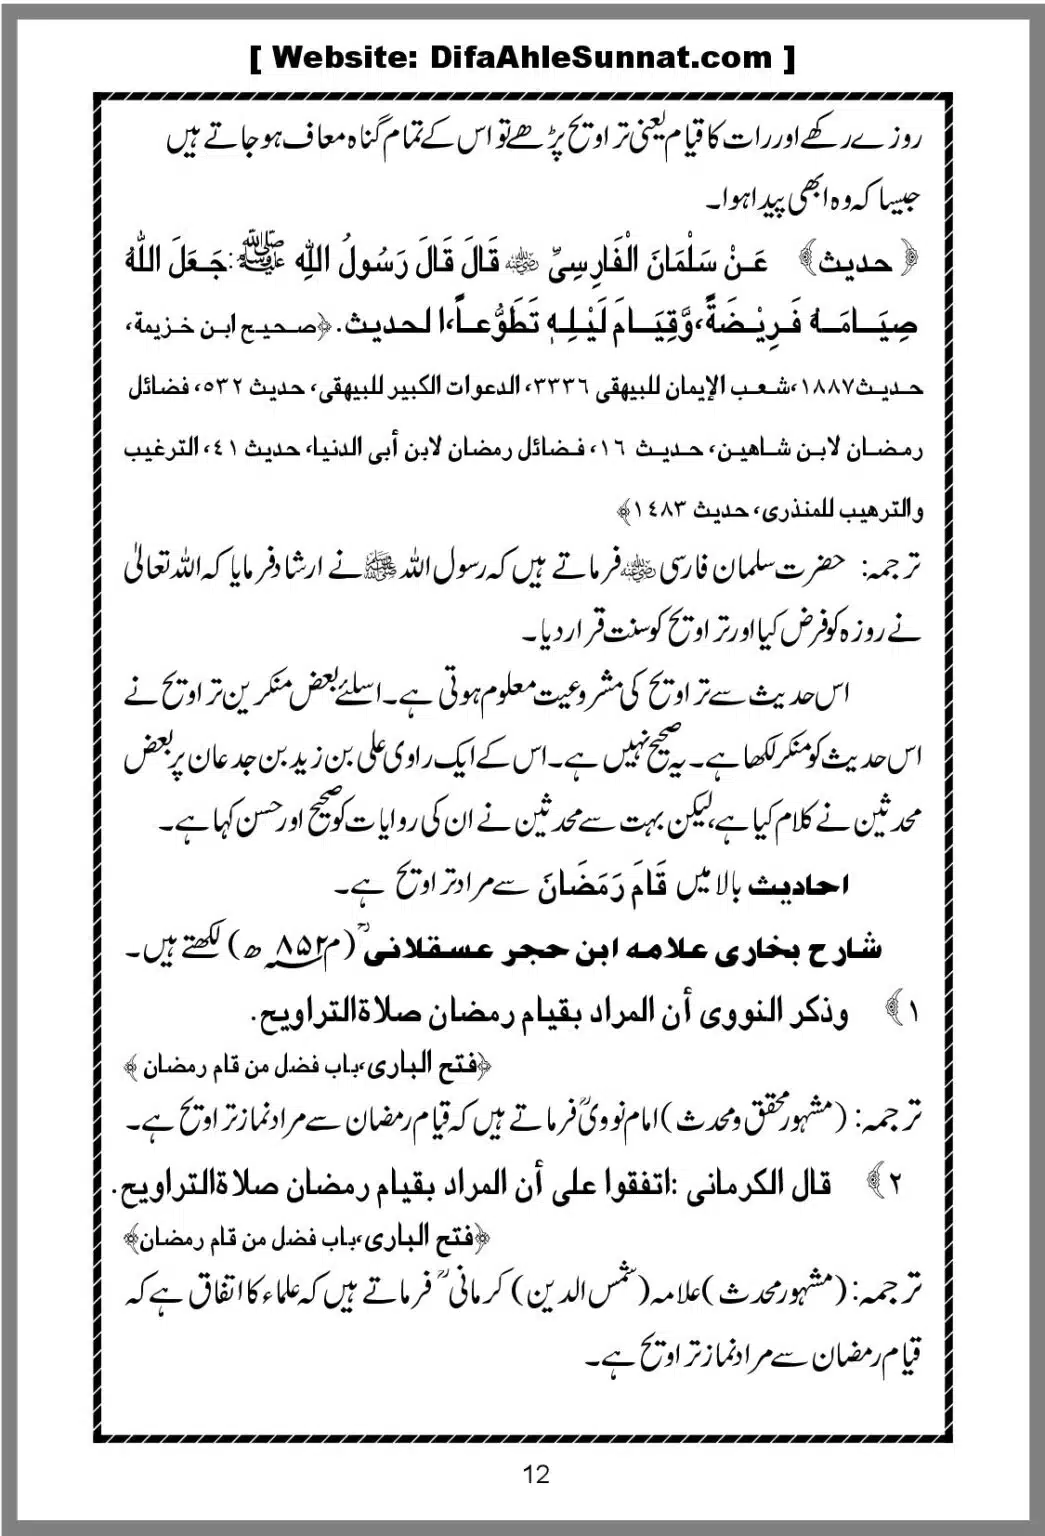 [ Website: DifaAhleSunnat.com ]
روزے رکھے اور رات کا قیام یعنی تراویح پڑھے تو اس کے تمام گناہ معاف ہو جاتے ہیں
جیسا کہ وہ ابھی پیدا ہوا۔
﴿حدیث﴾ عَنْ سَلْمَانَ الْفَارِسِیِّ ؓ قَالَ قَالَ رَسُولُ اللّٰهِ ﷺ:جَعَلَ اللّٰهُ
صِيَامَهُ فَرِيْضَةً،وَّقِيَامَ لَيْلِهٖ تَطَوُّعاً،الحدیث.﴿صحیح ابن خزیمة،
حدیث۱۸۸۷،شعب الإیمان للبیهقی ۳۳۳٦، الدعوات الکبیر للبیهقی، حدیث ۵۳۲، فضائل
رمضان لابن شاهین، حدیث ۱٦، فضائل رمضان لابن أبی الدنیا، حدیث ٤۱، الترغیب
والترهیب للمنذری، حدیث ۱٤۸۳﴾
ترجمہ: حضرت سلمان فارسی ؓ فرماتے ہیں کہ رسول اللہ ﷺ نے ارشاد فرمایا کہ اللہ تعالیٰ
نے روزہ کو فرض کیا اور تراویح کو سنت قرار دیا۔
اس حدیث سے تراویح کی مشروعیت معلوم ہوتی ہے۔ اسلئے بعض منکرین تراویح نے
اس حدیث کو منکر لکھا ہے۔ یہ صحیح نہیں ہے۔ اس کے ایک راوی علی بن زید بن جدعان پر بعض
محدثین نے کلام کیا ہے، لیکن بہت سے محدثین نے ان کی روایات کو صحیح اور حسن کہا ہے۔
احادیث بالا میں قَامَ رَمَضَانَ سے مراد تراویح ہے۔
شارح بخاری علامہ ابن حجر عسقلانیؒ (م ۸۵۲ھ) لکھتے ہیں۔
۱﴾ وذکر النووی أن المراد بقیام رمضان صلاةالتراویح.
﴿فتح الباری،باب فضل من قام رمضان ﴾
ترجمہ: (مشہور محقق و محدث) امام نوویؒ فرماتے ہیں کہ قیام رمضان سے مراد نماز تراویح ہے۔
۲﴾ قال الکرمانی :اتفقوا علی أن المراد بقیام رمضان صلاةالتراویح.
﴿فتح الباری،باب فضل من قام رمضان﴾
ترجمہ: (مشہور محدث) علامہ (شمس الدین) کرمانیؒ فرماتے ہیں کہ علماء کا اتفاق ہے کہ
قیام رمضان سے مراد نماز تراویح ہے۔
12